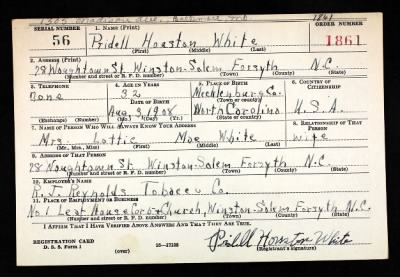 1861
SERIAL NUMBER 1. NAME (Print) ORDER NUMBER
56 Ridell Houston White 1861
(First) (Middle) (Last)
2. ADDRESS (Print)
28 Waughtown St. Winston-Salem Forsyth N.C.
(Number and street or R. F. D. number) (Town) (County) (State)
3. TELEPHONE 4. AGE IN YEARS 5. PLACE OF BIRTH 6. COUNTRY OF CITIZENSHIP
None 32 Mecklenburg Co.
DATE OF BIRTH (Town or county)
Aug. 9 1908 North Carolina U.S.A.
(Exchange) (Number) (Mo.) (Day) (Yr.) (State or country)
7. NAME OF PERSON WHO WILL ALWAYS KNOW YOUR ADDRESS 8. RELATIONSHIP OF THAT PERSON
Mrs. Lottie Mae White Wife
(Mr., Mrs., Miss) (First) (Middle) (Last)
9. ADDRESS OF THAT PERSON
28 Waughtown St. Winston-Salem Forsyth N.C.
(Number and street or R. F. D. number) (Town) (County) (State)
10. EMPLOYER'S NAME
R. J. Reynolds Tobacco Co.
11. PLACE OF EMPLOYMENT OR BUSINESS
No. 1 Leaf House Cor. Church, Winston-Salem Forsyth N.C.
(Number and street or R. F. D. number) (Town) (County) (State)
I AFFIRM THAT I HAVE VERIFIED ABOVE ANSWERS AND THAT THEY ARE TRUE.
REGISTRATION CARD
D. S. S. Form 1 (over) 16—17105 Ridell Houston White
(Registrant's signature)